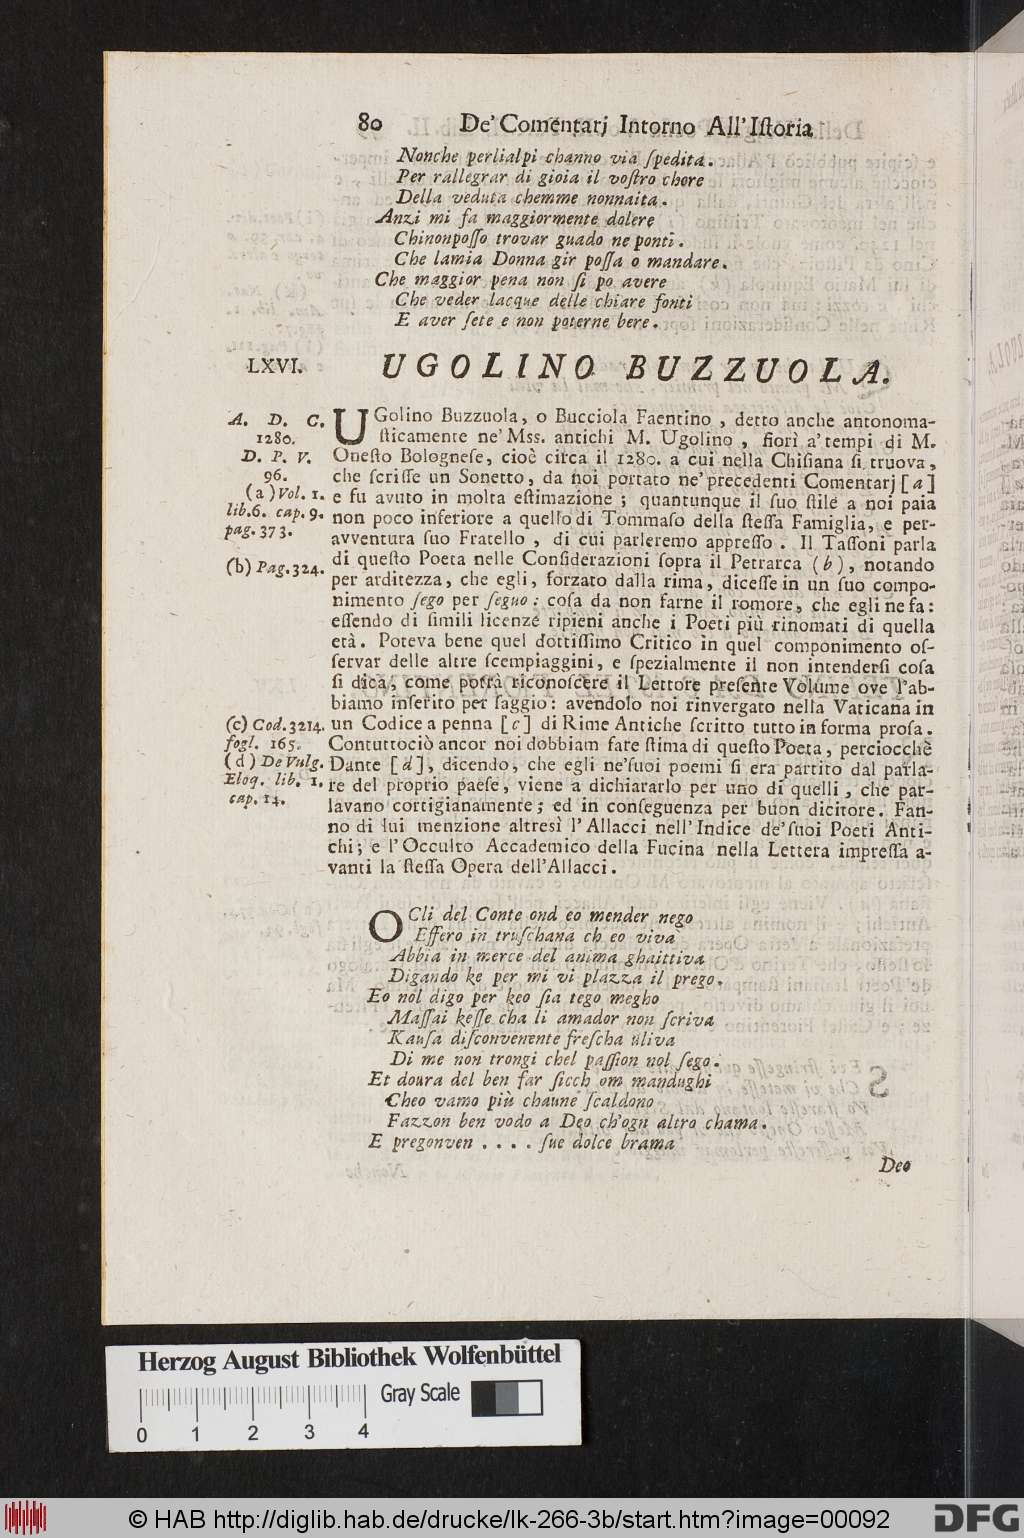 80 De' Comentarj Intorno All' Iſtoria
Nonche perlialpi channo via ſpedita.
Per rallegrar di gioia il voſtro chore
Della veduta chemme nonnaita.
Anzi mi fa maggiormente dolere
Chinonpoſſo trovar guado ne ponti.
Che lamia Donna gir poſſa o mandare.
Che maggior pena non ſi po avere
Che veder lacque delle chiare fonti
E aver ſete e non poterne bere.
LXVI. UGOLINO BUZZUOLA.
A. D. C.
1280.
D. P. V.
96.
(a) Vol. 1.
lib. 6. cap. 9.
pag. 373.
(b) Pag. 324.
UGolino Buzzuola, o Bucciola Faentino, detto anche antonoma-
ſticamente ne' Mss. antichi M. Ugolino, fiorì a' tempi di M.
Oneſto Bologneſe, cioè circa il 1280. a cui nella Chiſiana ſi truova,
che ſcriſſe un Sonetto, da noi portato ne' precedenti Comentarj [a]
e fu avuto in molta eſtimazione; quantunque il ſuo ſtile a noi paia
non poco inferiore a quello di Tommaſo della ſteſſa Famiglia, e per-
avventura ſuo Fratello, di cui parleremo appreſſo. Il Taſſoni parla
di queſto Poeta nelle Conſiderazioni ſopra il Petrarca (b), notando
per arditezza, che egli, forzato dalla rima, diceſſe in un ſuo compo-
nimento ſego per ſeguo: coſa da non farne il romore, che egli ne fa:
eſſendo di ſimili licenze ripieni anche i Poeti più rinomati di quella
età. Poteva bene quel dottiſſimo Critico in quel componimento oſ-
ſervar delle altre ſcempiaggini, e ſpezialmente il non intenderſi coſa
ſi dica, come potrà riconoſcere il Lettore preſente Volume ove l'ab-
biamo inſerito per ſaggio: avendolo noi rinvergato nella Vaticana in
un Codice a penna [c] di Rime Antiche ſcritto tutto in forma proſa.
Contuttociò ancor noi dobbiam fare ſtima di queſto Poeta, perciocchè
Dante [d], dicendo, che egli ne' ſuoi poemi ſi era partito dal parla-
re del proprio paeſe, viene a dichiararlo per uno di quelli, che par-
lavano cortigianamente; ed in conſeguenza per buon dicitore. Fan-
no di lui menzione altresì l'Allacci nell'Indice de' ſuoi Poeti Anti-
chi; e l'Occulto Accademico della Fucina nella Lettera impreſſa a-
vanti la ſteſſa Opera dell'Allacci.
(c) Cod. 3214.
fogl. 165.
(d) De Vulg.
Eloq. lib. 1.
cap. 14.
OCli del Conte ond eo mender nego
Eſſero in truſchana ch eo viva
Abbia in merce del anima ghaittiva
Digando ke per mi vi plazza il prego.
Eo nol digo per keo ſia tego megho
Maſſai keſſe cha li amador non ſcriva
Kauſa diſconvenente freſcha uliva
Di me non trongi chel paſſion nol ſego.
Et doura del ben far ſicch om mandughi
Cheo vamo più chaune ſcaldono
Fazzon ben vodo a Deo ch'ogn altro chama.
E pregonven . . . . ſue dolce brama
Deo
Herzog August Bibliothek Wolfenbüttel
Gray Scale
0 1 2 3 4
© HAB http://diglib.hab.de/drucke/lk-266-3b/start.htm?image=00092
DFG